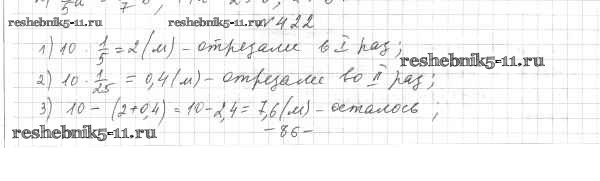 reshebnik5-11.ru reshebnik5-11.ru № 422
1) 10 · 1/5 = 2 (м) - отрезали в I раз;
reshebnik5-11.ru
2) 10 · 1/25 = 0,4 (м) - отрезали во II раз;
3) 10 - (2+0,4) = 10-2,4 = 7,6 (м) - осталось;
reshebnik5-11.ru
-86-